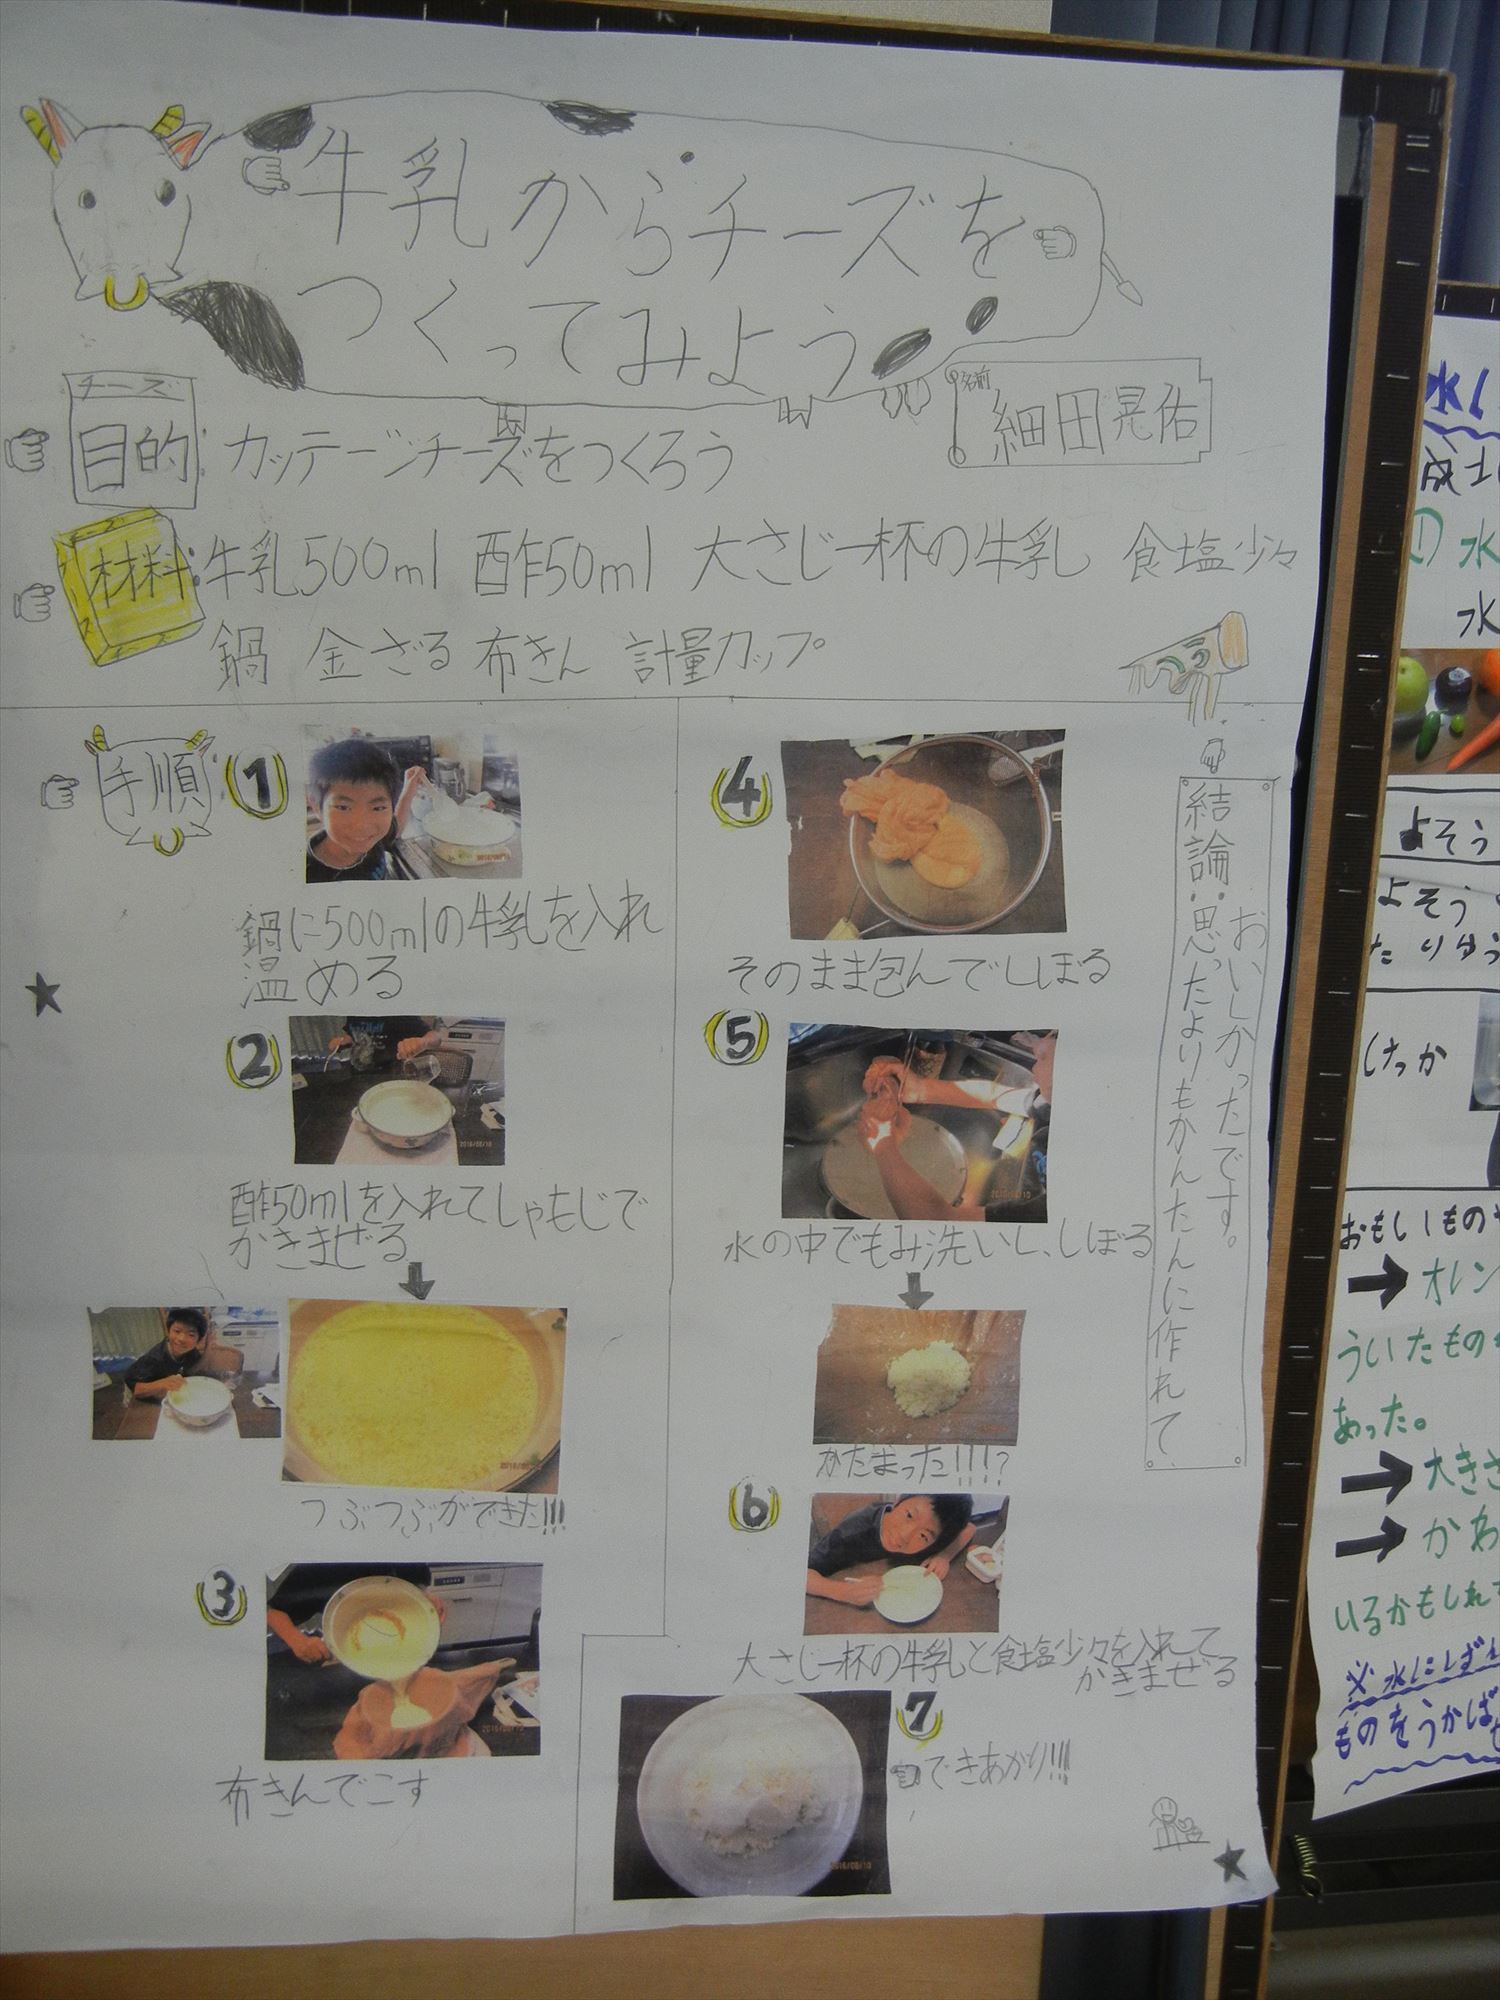 牛乳からチーズを
つくってみよう
名前
細田晃佑
チーズ
目的:カッテージチーズをつくろう
材料:牛乳500ml 酢50ml 大さじ一杯の牛乳 食塩少々
鍋 金ざる 布きん 計量カップ
手順:
1
鍋に500mlの牛乳を入れ
温める
2
酢50mlを入れてしゃもじで
かきまぜる
つぶつぶができた!!!
3
布きんでこす
4
そのまま包んでしぼる
5
水の中でもみ洗いし、しぼる
かたまった!!!?
6
大さじ一杯の牛乳と食塩少々を入れて
かきまぜる
7
できあがり!!!
結論:思ったよりもかんたんに作れて
おいしかったです。
の水
水
よそう
よそう
たりゆう
けっか
おもしものや
オレン
ういたもの
あった。
大きさ
かわ
いるかもしれ
※水にしずん
ものをうかば